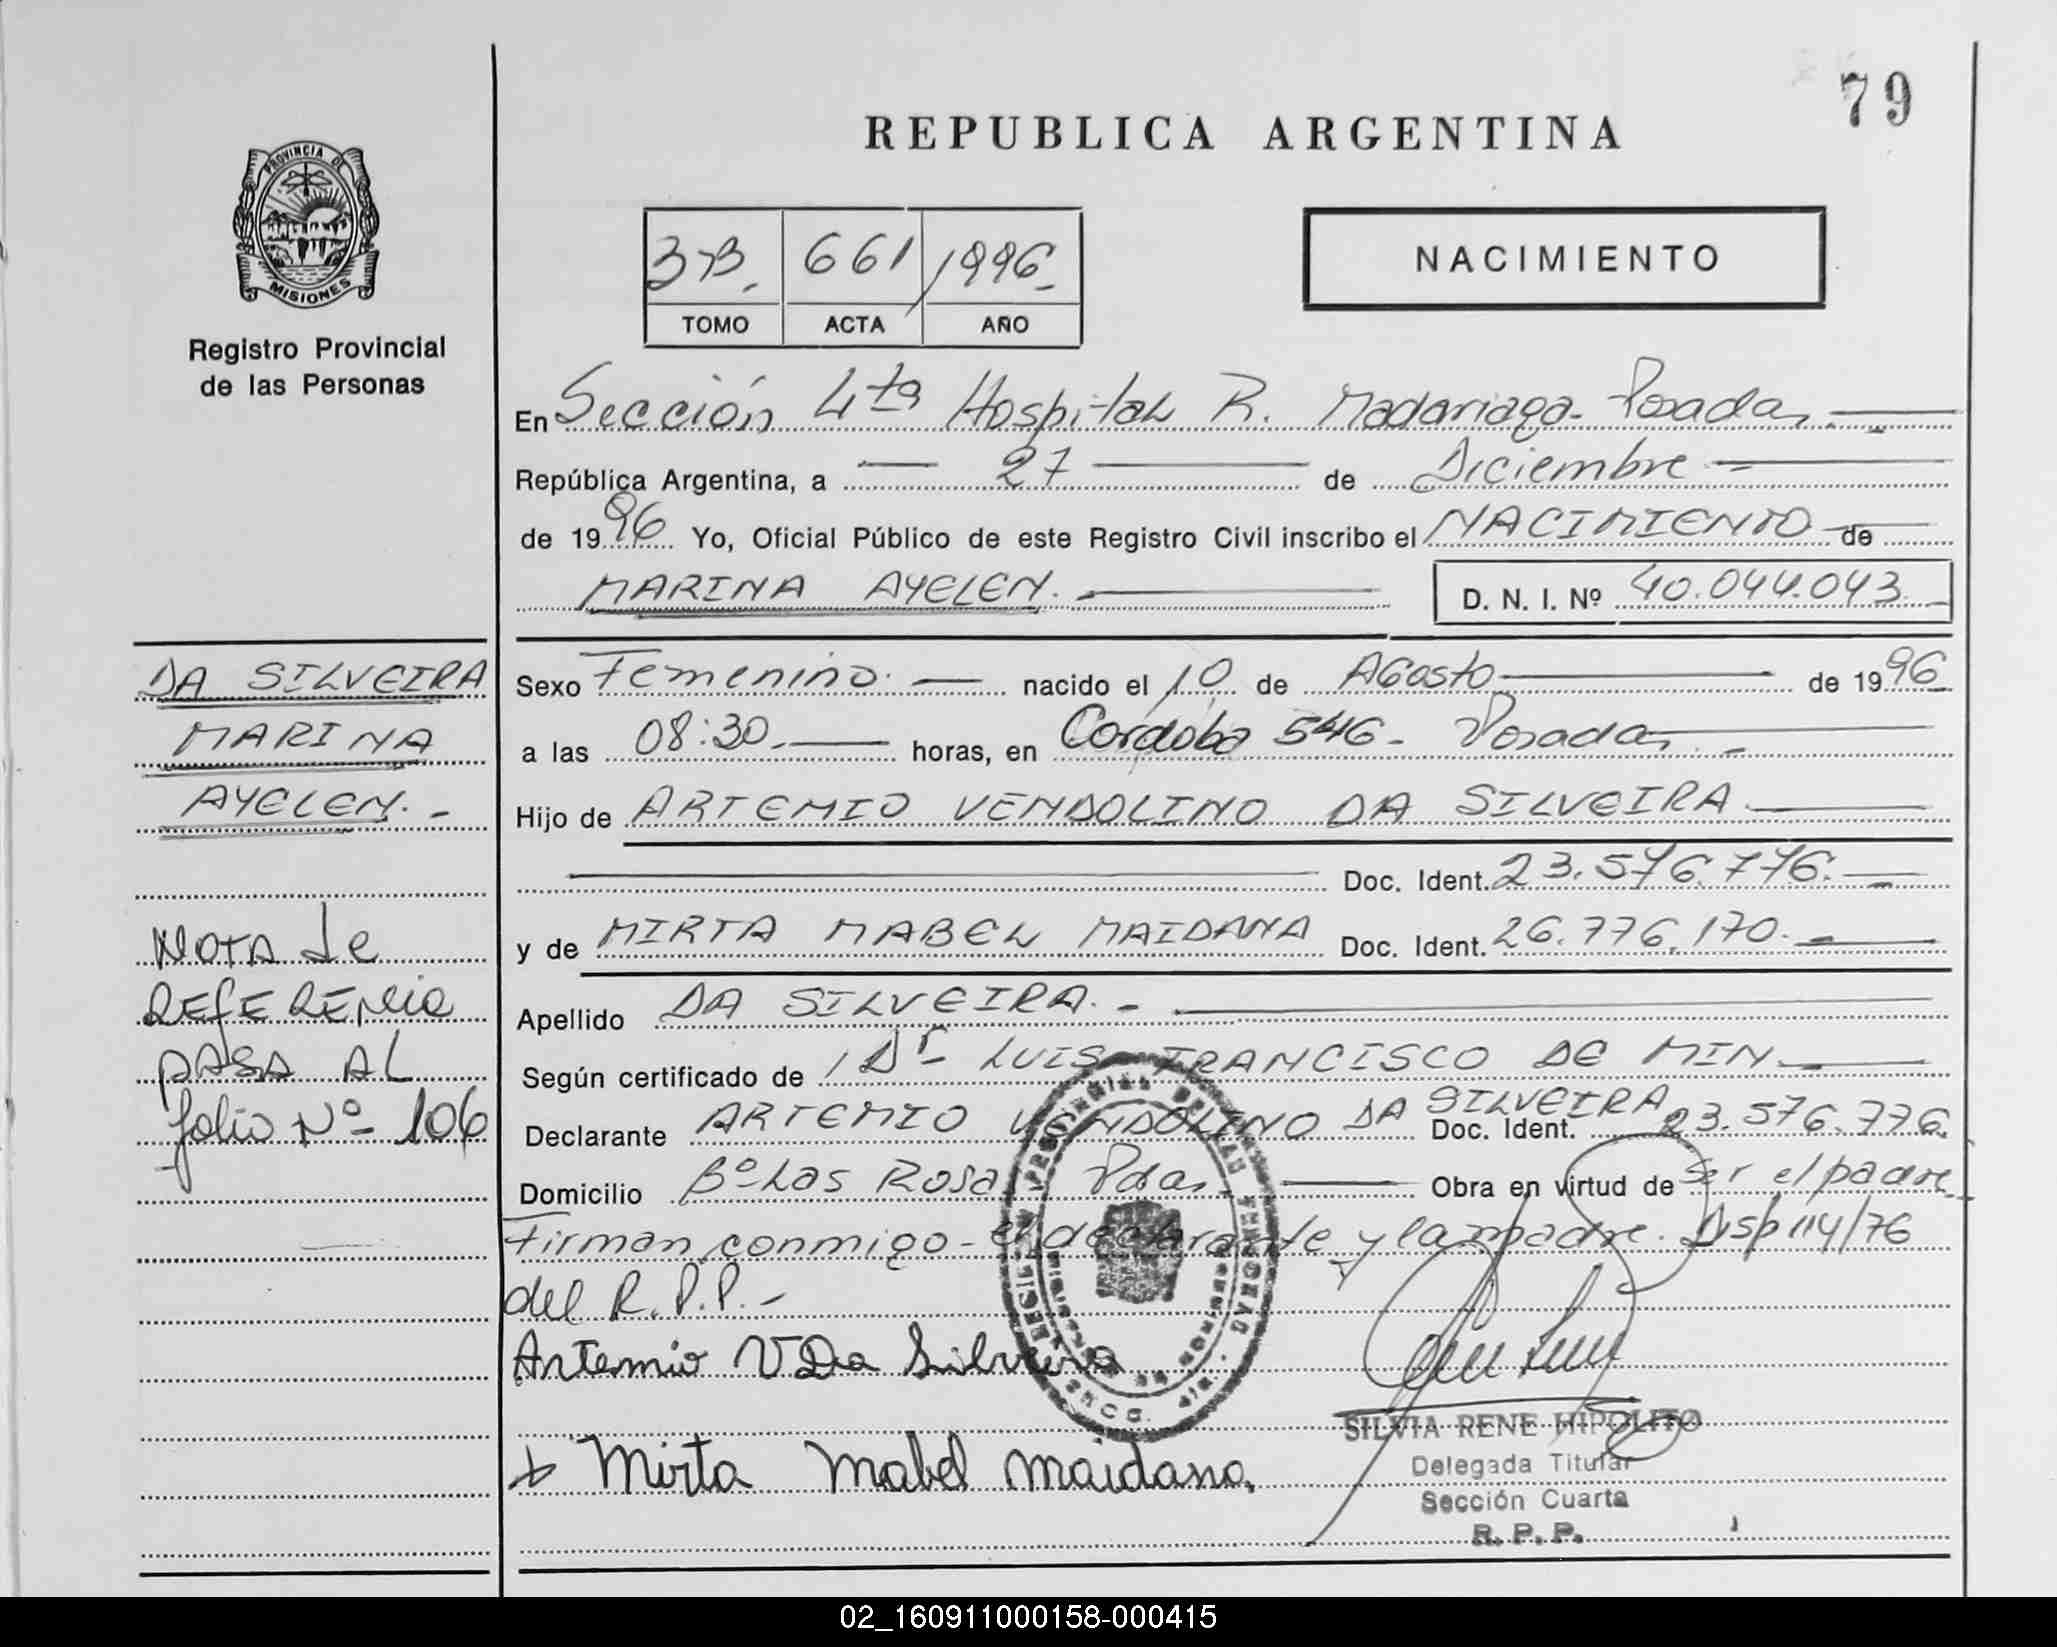 79
REPUBLICA ARGENTINA
PROVINCIA DE
MISIONES
Registro Provincial
de las Personas
3-B. 661 1996_
TOMO ACTA AÑO
NACIMIENTO
En Sección 4ta Hospital R. Madariaga - Posadas
República Argentina, a 27 de Diciembre
de 1996 Yo, Oficial Público de este Registro Civil inscribo el NACIMIENTO de
MARINA AYELEN. D. N. I. Nº 40.044.043
DA SILVEIRA
MARINA
AYELEN. -
NOTA de
REFERENcia
PASA AL
folio Nº 106
Sexo Femenino. nacido el 10 de Agosto de 1996
a las 08:30. horas, en Cordoba 546 - Posadas
Hijo de ARTEMIO VENDOLINO DA SILVEIRA
Doc. Ident. 23.576.776.
y de MIRTA MABEL MAIDANA Doc. Ident. 26.776.170.
Apellido DA SILVEIRA. -
Según certificado de Dr LUIS FRANCISCO DE MIN
Declarante ARTEMIO VENDOLINO DA SILVEIRA Doc. Ident. 23.576.776.
Domicilio Bº Las Rosas Pdas. Obra en virtud de Ser el padre
Firman conmigo - el declarante y la madre. Disp 114/76
del R.P.P. -
Artemio V Da Silveira
Mirta Mabel Maidana.
SILVIA RENE HIPOLITO
Delegada Titular
Sección Cuarta
R. P. P.
02_160911000158-000415